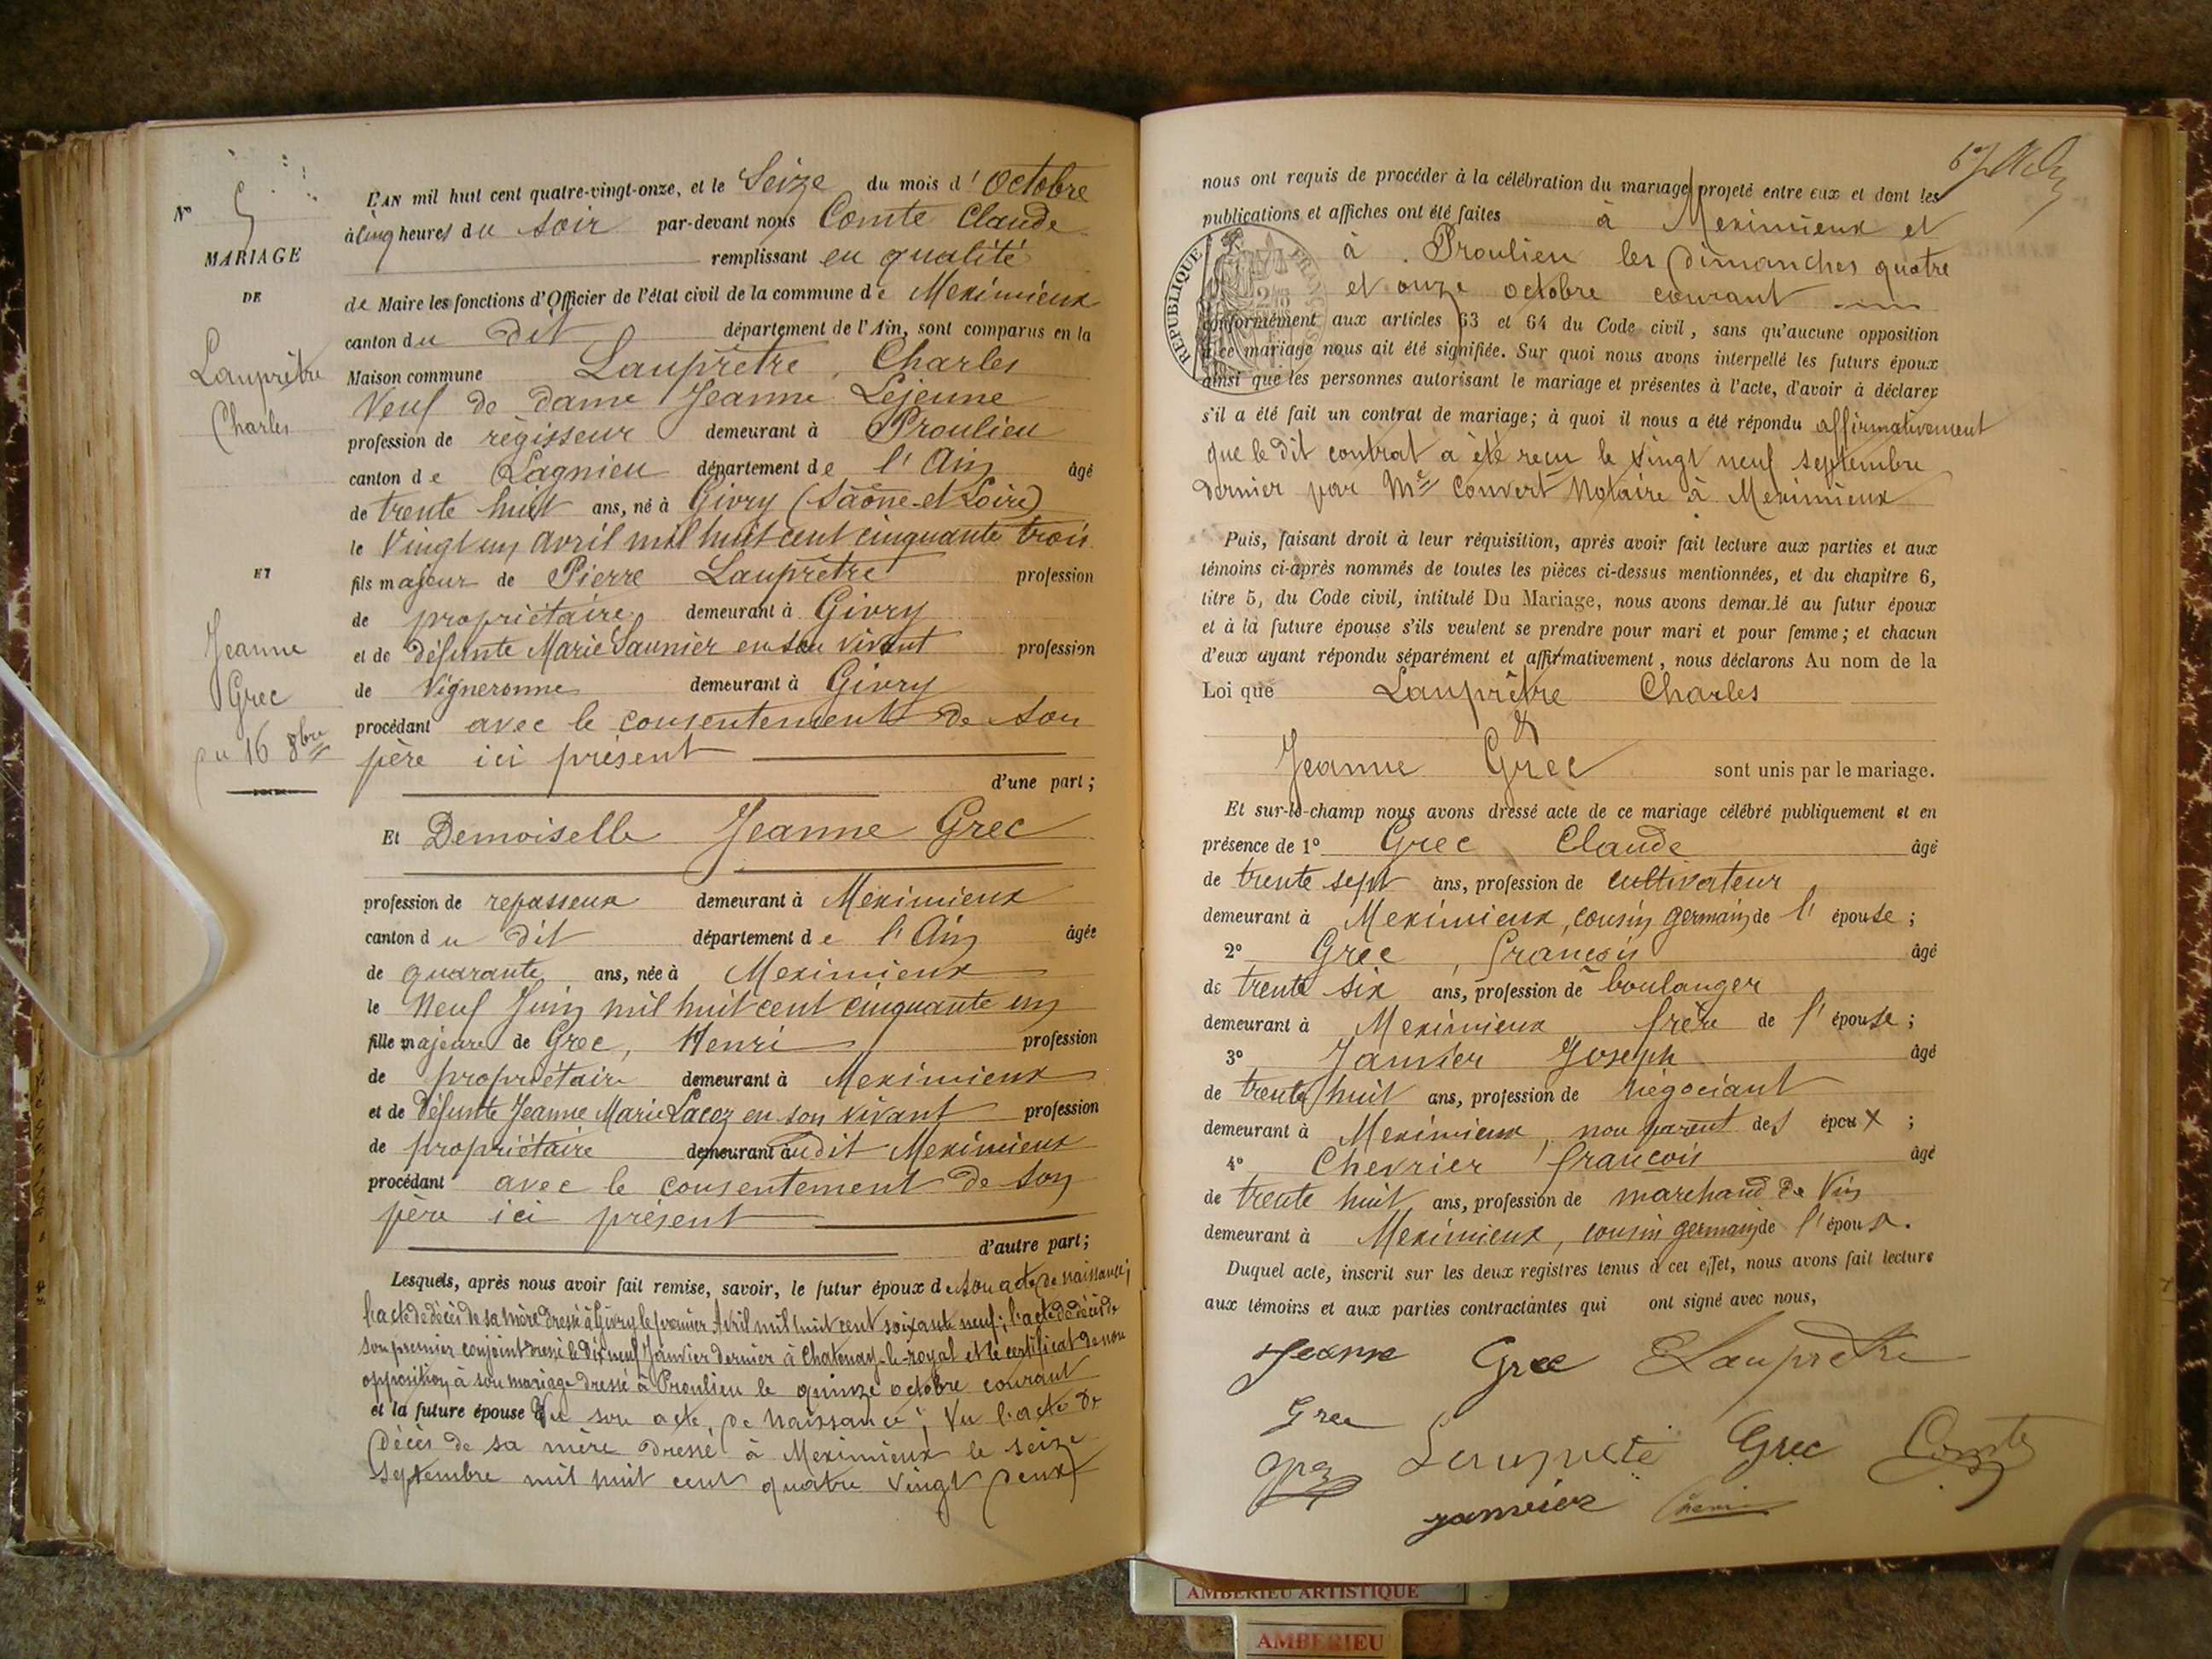 N° 5
MARIAGE
DE
Lauprêtre
Charles
ET
Jeanne
Grec
du 16 8bre
L'AN mil huit cent quatre-vingt-onze, et le Seize du mois d'Octobre
à cinq heures du Soir par-devant nous Comte Claude
remplissant en qualité
de Maire les fonctions d'Officier de l'état civil de la commune de Meximieux
canton du dit département de l'Ain, sont comparus en la
Maison commune Lauprêtre, Charles
Veuf de dame Jeanne Lejeune
profession de régisseur demeurant à Proulieu
canton de Lagnieu département de l'Ain âgé
de trente huit ans, né à Givry (Saône-et-Loire)
le Vingt un avril mil huit cent cinquante trois
fils majeur de Pierre Lauprêtre profession
de propriétaire demeurant à Givry
et de défunte Marie Saunier en son vivant profession
de Vigneronne demeurant à Givry
procédant avec le consentement de son
père ici présent
d'une part;
Et Demoiselle Jeanne Grec
profession de repasseuse demeurant à Meximieux
canton du dit département de l'Ain âgée
de quarante ans, née à Meximieux
le Neuf Juin mil huit cent cinquante un
fille majeure de Grec, Henri profession
de propriétaire demeurant à Meximieux
et de défunte Jeanne Marie Lacoz en son vivant profession
de propriétaire demeurant audit Meximieux
procédant avec le consentement de son
père ici présent
d'autre part;
Lesquels, après nous avoir fait remise, savoir, le futur époux de son acte de naissance;
l'acte de décès de sa mère dressé à Givry le premier Avril mil huit cent soixante neuf; l'acte de décès de
son premier conjoint dressé le dix neuf Janvier dernier à Chatenay-le-royal et le certificat de non
opposition à son mariage dressé à Proulieu le quinze octobre courant
et la future épouse Vu son acte de naissance; Vu l'acte de
décès de sa mère dressé à Meximieux le seize
septembre mil huit cent quatre vingt deux
nous ont requis de procéder à la célébration du mariage projeté entre eux et dont les
publications et affiches ont été faites à Meximieux et
à Proulieu les dimanches quatre
et onze octobre courant
REPUBLIQUE FRANÇAISE
conformément aux articles 63 et 64 du Code civil, sans qu'aucune opposition
à ce mariage nous ait été signifiée. Sur quoi nous avons interpellé les futurs époux
ainsi que les personnes autorisant le mariage et présentes à l'acte, d'avoir à déclarer
s'il a été fait un contrat de mariage; à quoi il nous a été répondu affirmativement
que le dit contrat a été reçu le vingt neuf septembre
dernier par Me Convert Notaire à Meximieux
Puis, faisant droit à leur réquisition, après avoir fait lecture aux parties et aux
témoins ci-après nommés de toutes les pièces ci-dessus mentionnées, et du chapitre 6,
titre 5, du Code civil, intitulé Du Mariage, nous avons demandé au futur époux
et à la future épouse s'ils veulent se prendre pour mari et pour femme; et chacun
d'eux ayant répondu séparément et affirmativement, nous déclarons Au nom de la
Loi que Lauprêtre Charles
&
Jeanne Grec sont unis par le mariage.
Et sur-le-champ nous avons dressé acte de ce mariage célébré publiquement et en
présence de 1° Grec Claude âgé
de trente sept ans, profession de cultivateur
demeurant à Meximieux, cousin germain de l'épouse;
2° Grec, François âgé
de trente six ans, profession de boulanger
demeurant à Meximieux frère de l'épouse;
3° Janvier Joseph âgé
de trente huit ans, profession de négociant
demeurant à Meximieux, non parent des époux;
4° Chevrier François âgé
de trente huit ans, profession de marchand de Vin
demeurant à Meximieux, cousin germain de l'épouse.
Duquel acte, inscrit sur les deux registres tenus à cet effet, nous avons fait lecture
aux témoins et aux parties contractantes qui ont signé avec nous,
Jeanne Grec Laupretre
Grec
Grec Comte
janvier
AMBERIEU ARTISTIQUE
AMBERIEU